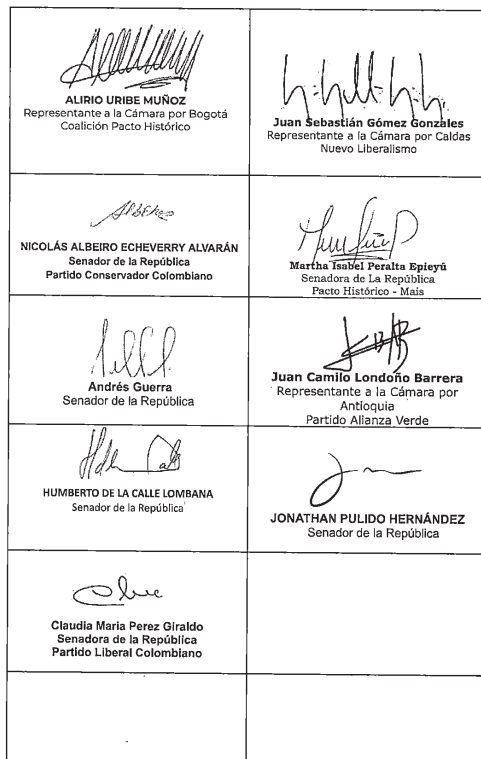 ALIRIO URIBE MUÑOZ
Representante a la Cámara por Bogotá
Coalición Pacto Histórico
Juan Sebastián Gómez Gonzales
Representante a la Cámara por Caldas
Nuevo Liberalismo
NICOLÁS ALBEIRO ECHEVERRY ALVARÁN
Senador de la República
Partido Conservador Colombiano
Martha Isabel Peralta Epieyú
Senadora de La República
Pacto Histórico - Mais
Andrés Guerra
Senador de la República
Juan Camilo Londoño Barrera
Representante a la Cámara por
Antioquia
Partido Alianza Verde
HUMBERTO DE LA CALLE LOMBANA
Senador de la República
JONATHAN PULIDO HERNÁNDEZ
Senador de la República
Claudia Maria Perez Giraldo
Senadora de la República
Partido Liberal Colombiano